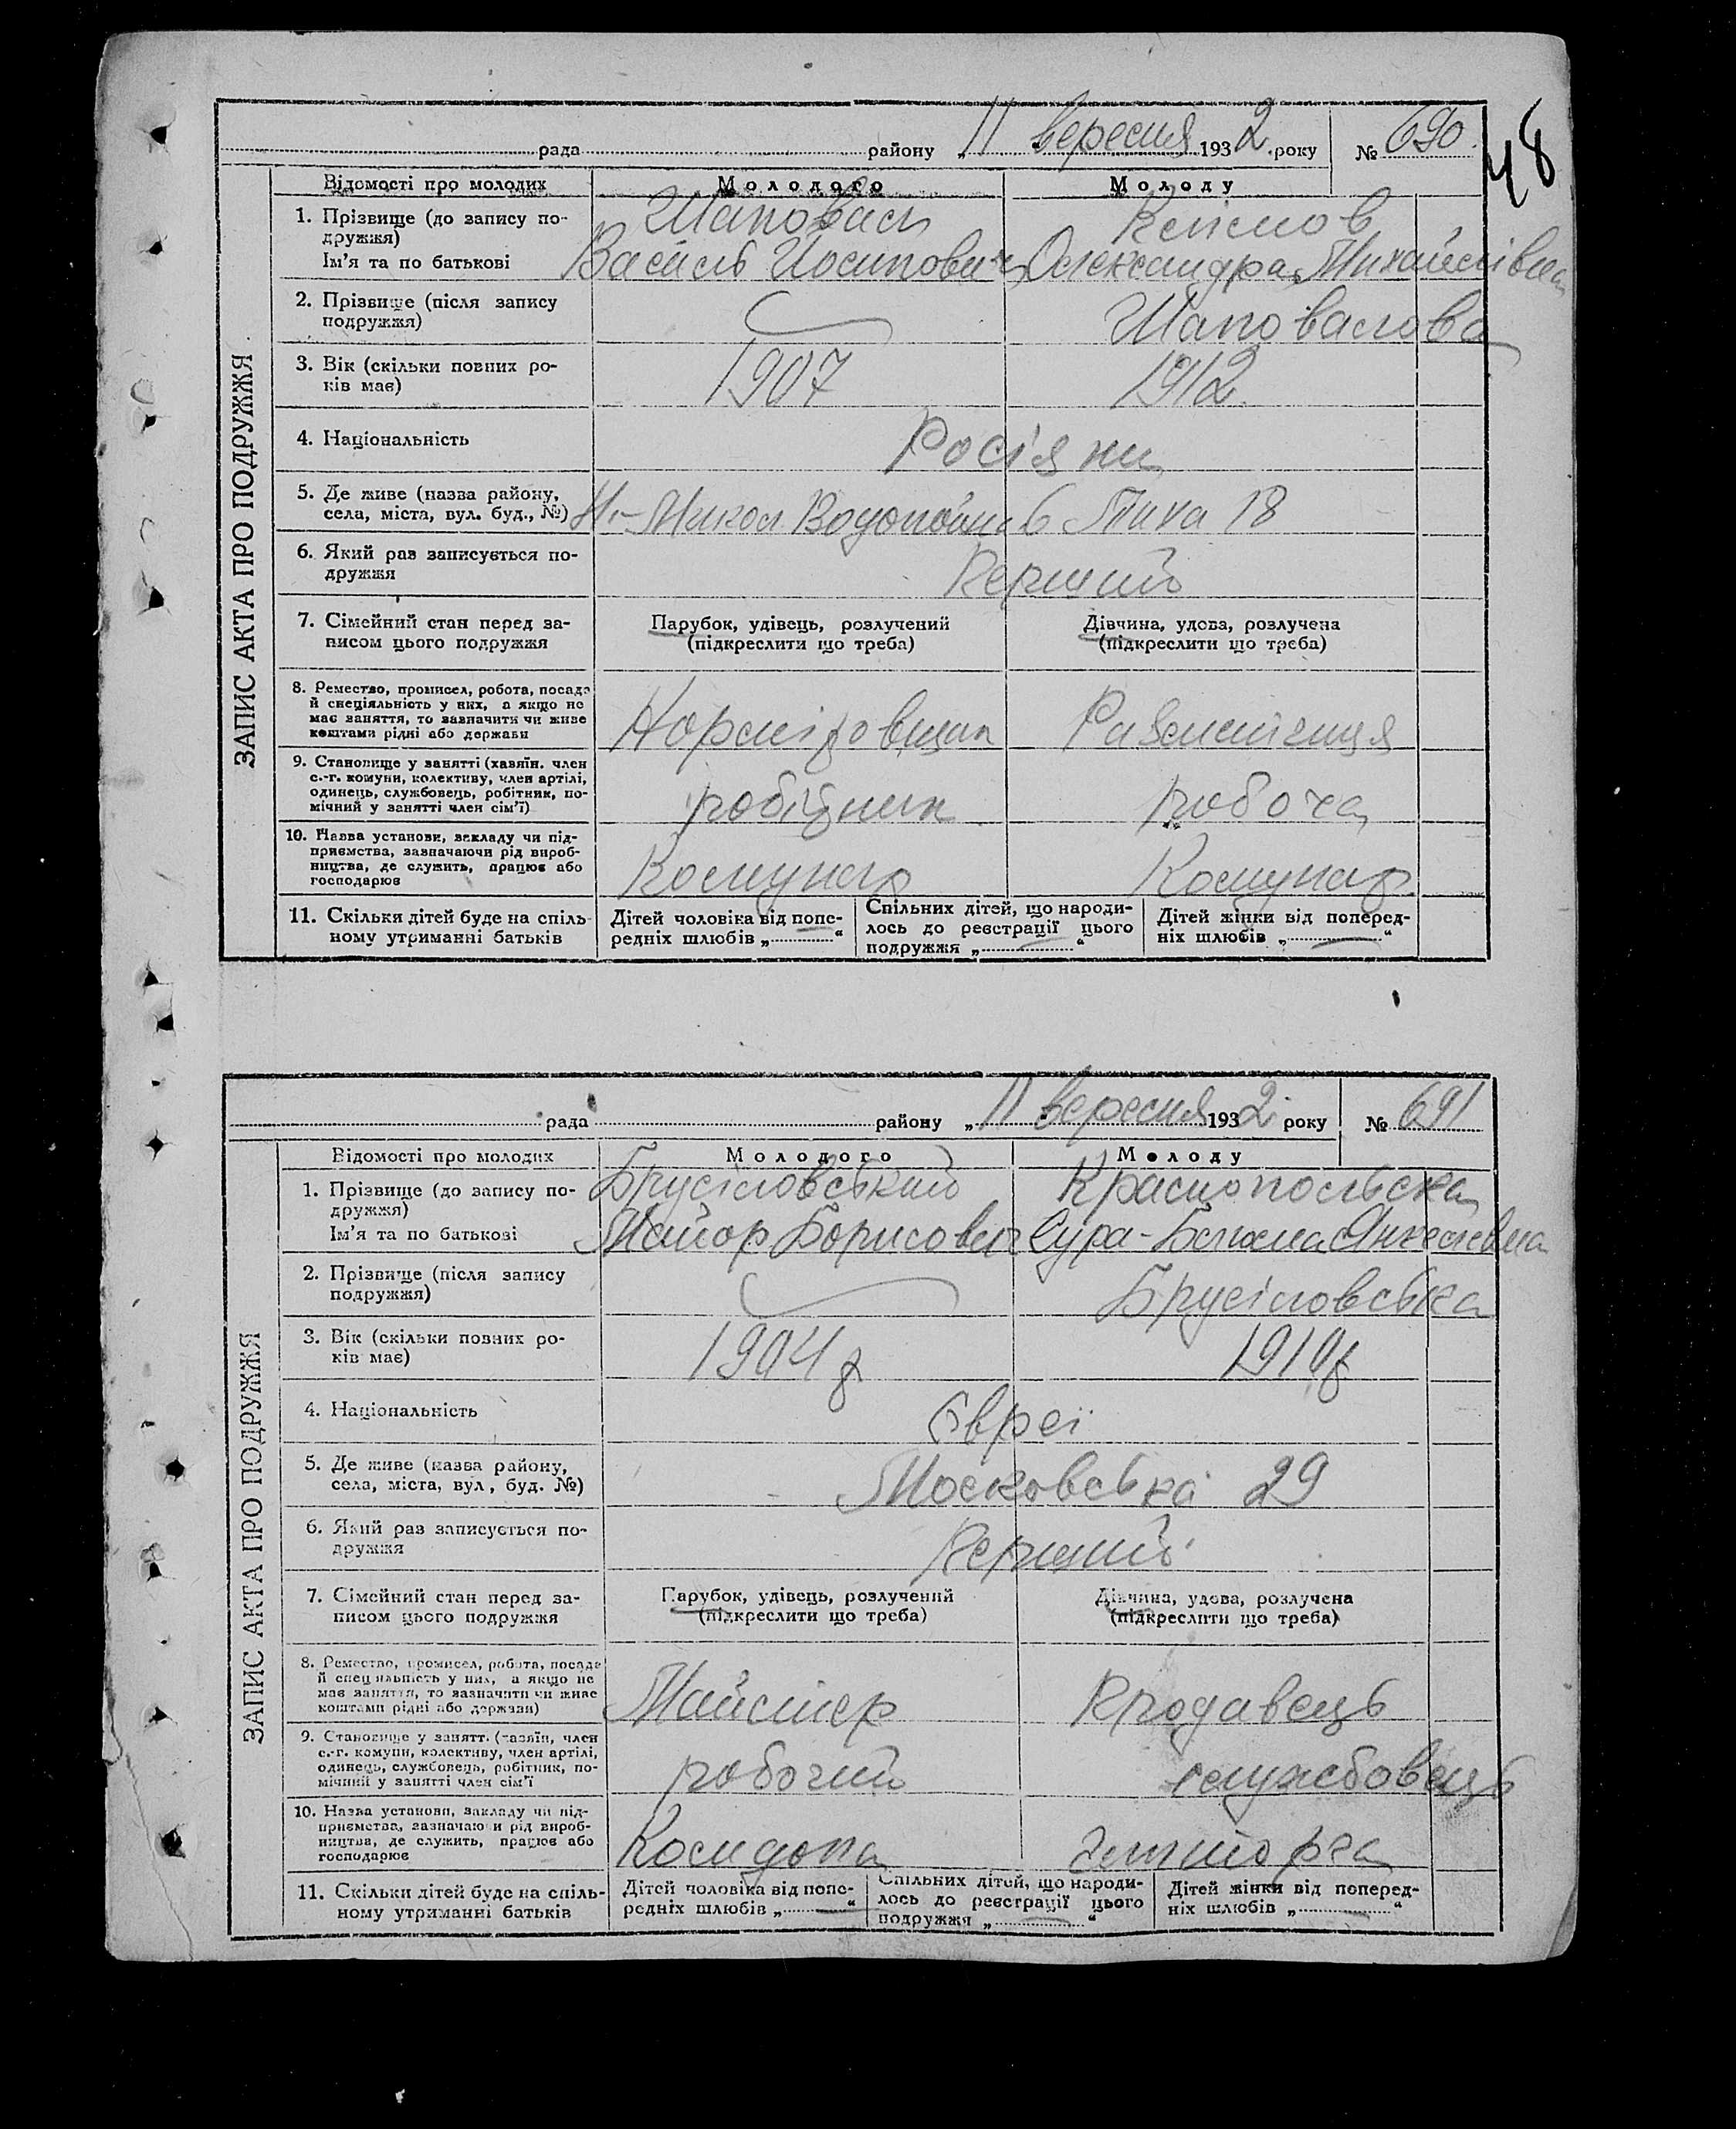 48
рада району „11 вересня 1932 року № 690
Відомості про молодих Молодого Молоду
ЗАПИС АКТА ПРО ПОДРУЖЖЯ
1. Прізвище (до запису по- Шаповал
дружжя)
Ім'я та по батькові Василь Йосипович Олександра Михайлівна
2. Прізвище (після запису Шаповалова
подружжя)
3. Вік (скільки повних ро- 1907 1912
ків має)
4. Національність Росіяни
5. Де живе (назва району,
села, міста, вул. буд., №) 6 18
6. Який раз записується по- Перший
дружжя
7. Сімейний стан перед за- Парубок, удівець, розлучений Дівчина, удова, розлучена
писом цього подружжя (підкреслити що треба) (підкреслити що треба)
8. Ремество, промисел, робота, посада
й спеціяльність у них, а якщо не
має заняття, то зазначити чи живе
коштами рідні або держави
9. Становище у занятті (хазяїн. член
с.-г. комуни, колективу, член артілі,
одинець, службовець, робітник, по- робітник робоча
мічний у занятті член сім'ї)
10. Назва установи, закладу чи під-
приємства, зазначаючи рід вироб-
ництва, де служить, працює або Комунар Комунар
господарює
11. Скільки дітей буде на спіль- Дітей чоловіка від попе- Спільних дітей, що народи- Дітей жінки від поперед-
ному утриманні батьків редніх шлюбів „ “ лось до реєстрації цього ніх шлюбів „ “
подружжя „ “
рада району „11 вересня 1932 року № 691
Відомості про молодих Молодого Молоду
ЗАПИС АКТА ПРО ПОДРУЖЖЯ
1. Прізвище (до запису по- Брусіловський Краснопольска
дружжя)
Ім'я та по батькові Майор Борисович Сура- Янкелевна
2. Прізвище (після запису Брусіловська
подружжя)
3. Вік (скільки повних ро- 1904 р 1910 р
ків має)
4. Національність Євреї
5. Де живе (назва району, Московська 29
села, міста, вул, буд. №)
6. Який раз записується по- Перший
дружжя
7. Сімейний стан перед за- Парубок, удівець, розлучений Дівчина, удова, розлучена
писом цього подружжя (підкреслити що треба) (підкреслити що треба)
8. Ремество, промисел, робота, посада
й спеціяльність у них, а якщо не
має заняття, то зазначити чи живе Майстер Продавець
коштами рідні або держави)
9. Становище у занятт. (хазяїн, член
с.-г. комуни, колективу, член артілі,
одинець, службовець, робітник, по- робочий службовець
мічний у занятті член сім'ї
10. Назва установи, закладу чи під-
приємства, зазначаючи рід вироб-
ництва, де служить, працює або
господарює
11. Скільки дітей буде на спіль- Дітей чоловіка від попе- Спільних дітей, що народи- Дітей жінки від поперед-
ному утриманні батьків редніх шлюбів „ “ лось до реєстрації цього ніх шлюбів „ “
подружжя „ “